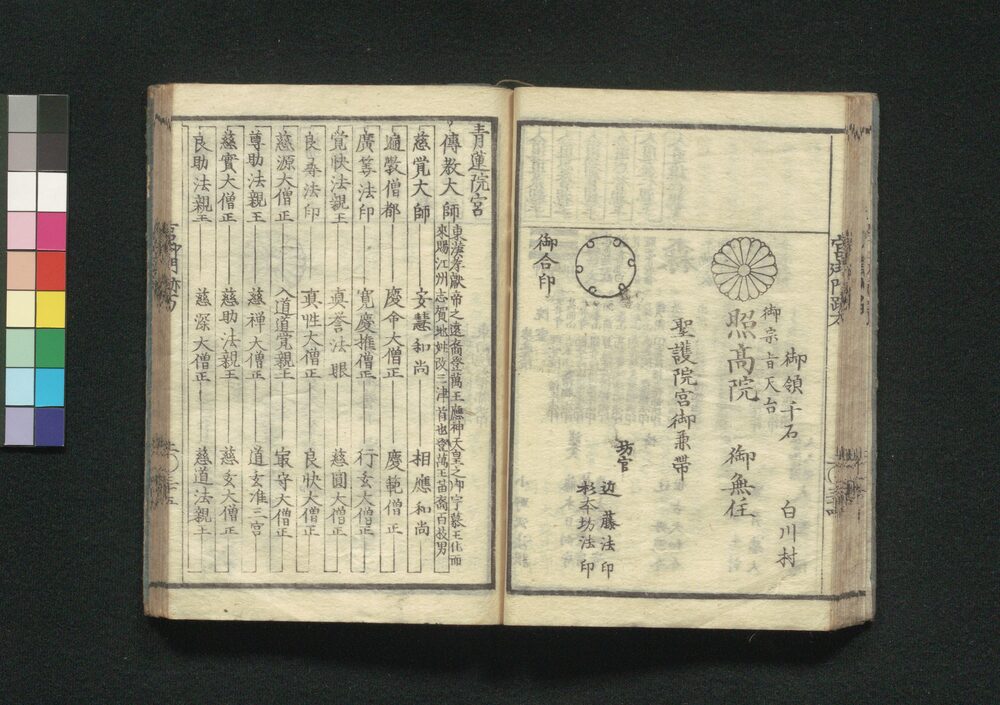 御領千石
白川村
御宗旨天台
照高院
御無住
聖護院宮御兼帯
坊官
辺藤法印
杉本坊法印
御合印
青蓮院宮
傳教大師
東漢孝献帝之遠裔登萬王應神天皇之御宇慕王化而
來賜江州志賀地姓改三津首也登萬王苗裔百枝男
慈覺大師 安慧和尚 相應和尚
遍斅僧都 慶命大僧正 慶範僧正
廣筭法印 寛慶推僧正 行玄大僧正
覚快法親王 真誉法眼 慈圓大僧正
良尋法印 真性大僧正 良快大僧正
慈源大僧正 入道道覚親王 最守大僧正
尊助法親王 慈禅大僧正 道玄准三宮
慈實大僧正 慈助法親王 慈玄大僧正
良助法親王 慈深大僧正 慈道法親王